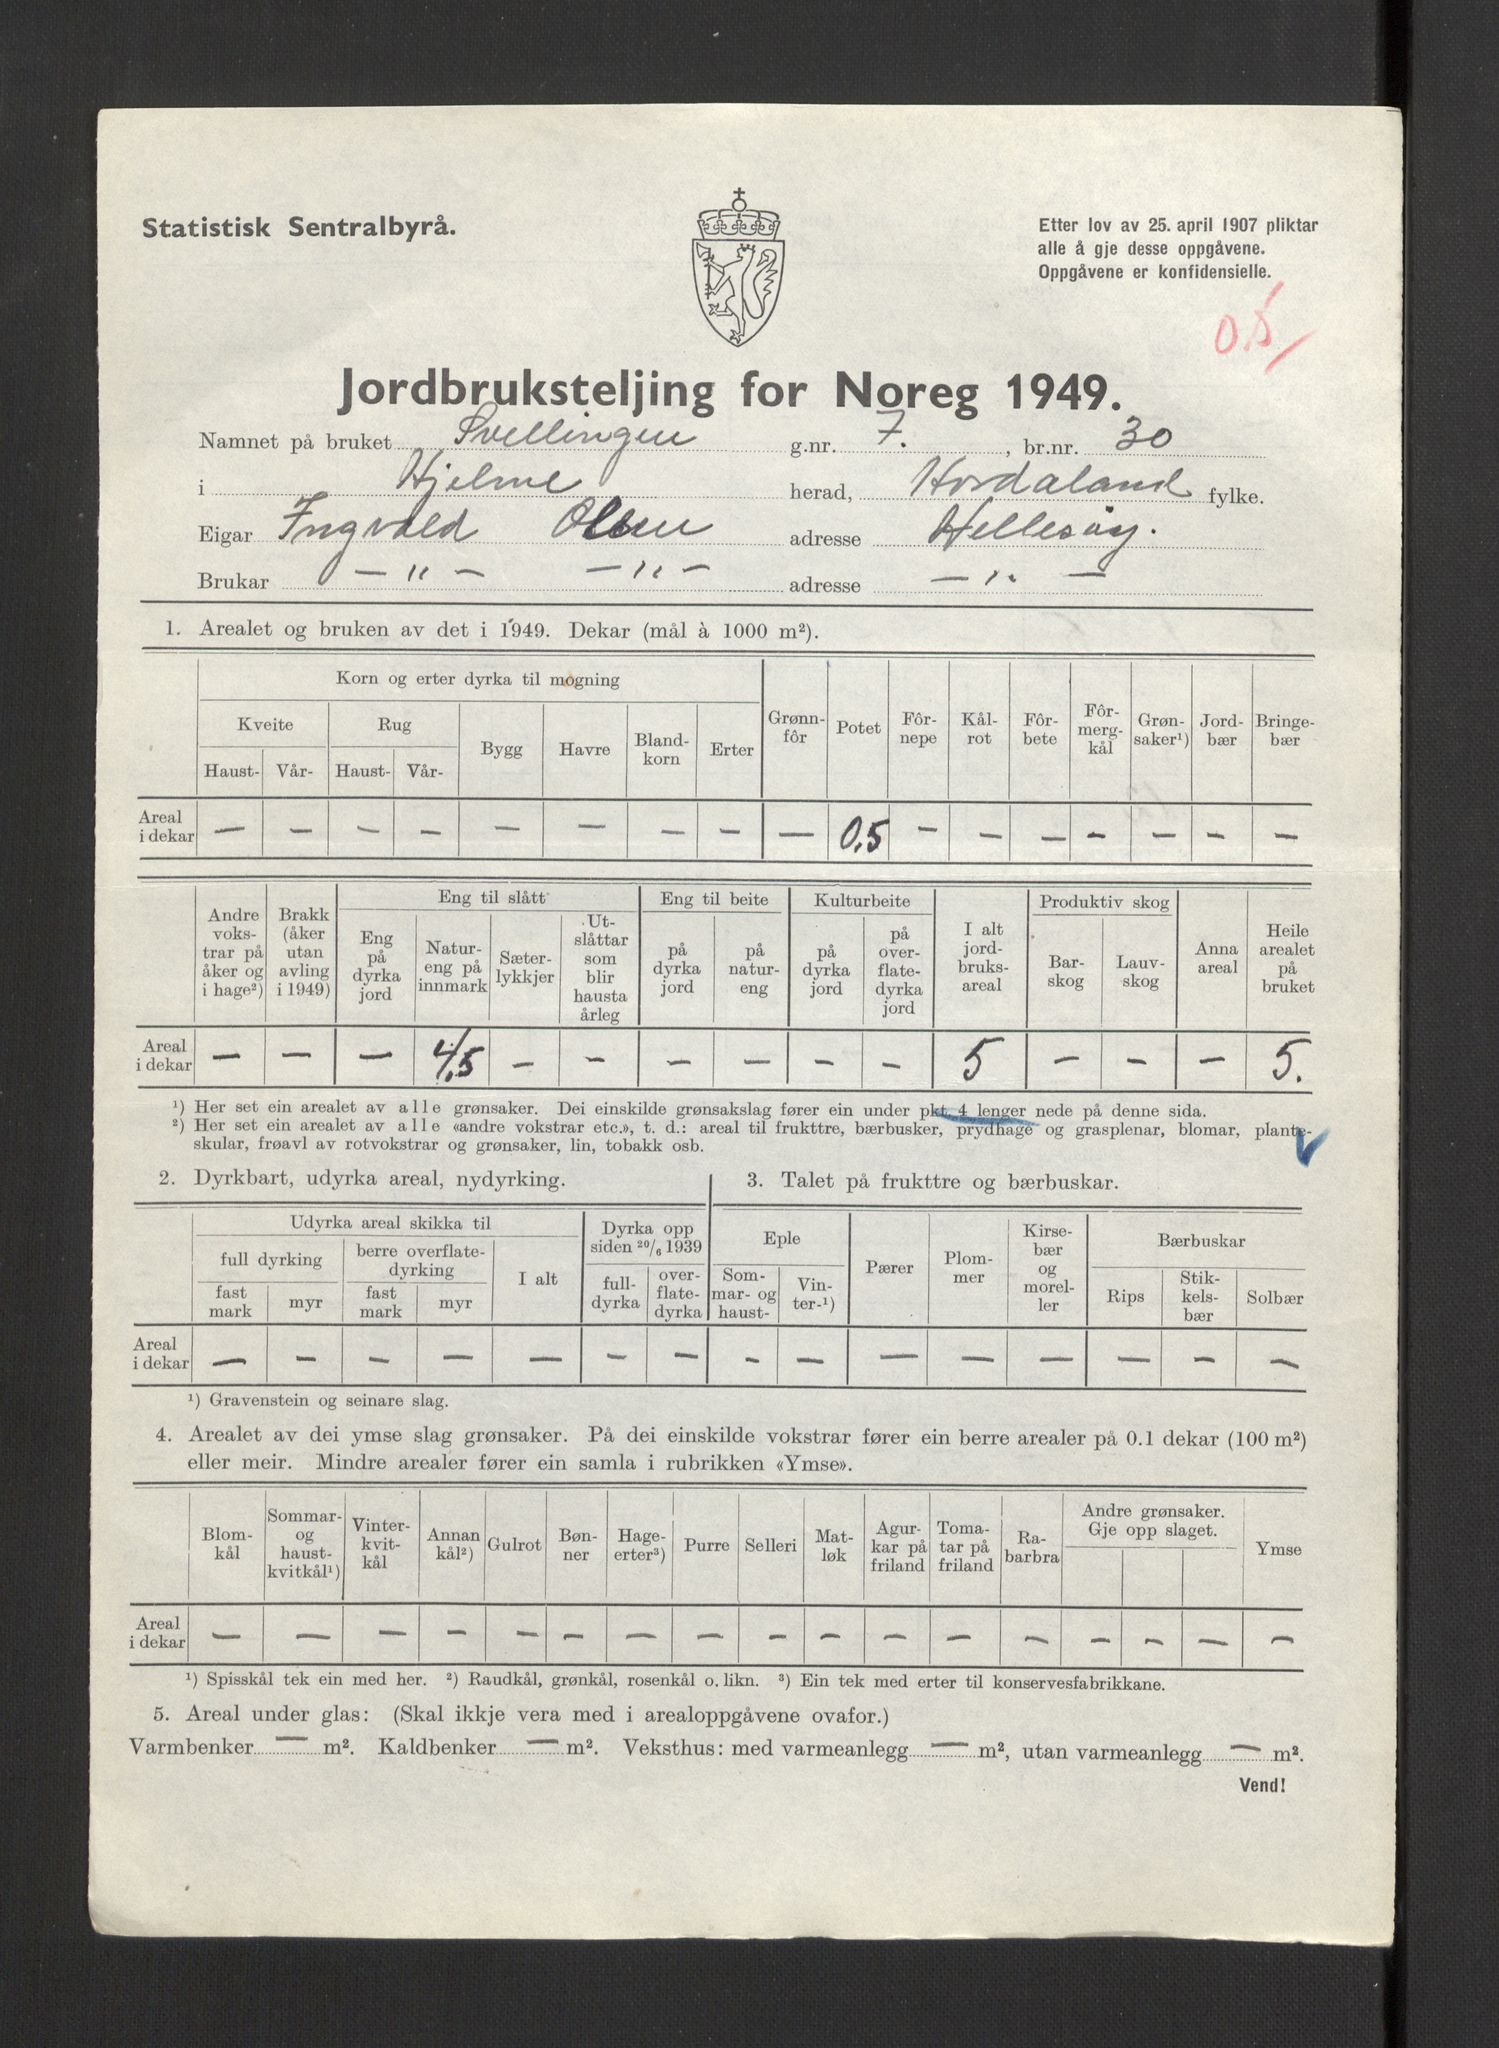 Statistisk Sentralbyrå.
Etter lov av 25. april 1907 pliktar
alle å gje desse oppgåvene.
Oppgåvene er konfidensielle.
0.5/
Jordbruksteljing for Noreg 1949.
Namnet på bruket Svellingen g.nr. 7. , br.nr. 30
i Hjelme herad, Hordaland fylke.
Eigar Ingvald Olsen adresse Hellesøy.
Brukar — " — — " — adresse — " —
1. Arealet og bruken av det i 1949. Dekar (mål à 1000 m²).
Korn og erter dyrka til mogning
Kveite Rug Bygg Havre Bland-korn Erter Grønn-fôr Potet Fôr-nepe Kål-rot Fôr-bete Fôr-merg-kål Grøn-saker¹) Jord-bær Bringe-bær
Haust- Vår- Haust- Vår-
Areal i dekar — — — — — — — — — 0,5 — — — — — — —
Andre voks-trar på åker og i hage²) Brakk (åker utan avling i 1949) Eng til slått Eng til beite Kulturbeite I alt jord-bruks-areal Produktiv skog Anna areal Heile arealet på bruket
Eng på dyrka jord Natur-eng på innmark Sæter-lykkjer Ut-slåttar som blir hausta årleg på dyrka jord på natur-eng på dyrka jord på over-flate-dyrka jord Bar-skog Lauv-skog
Areal i dekar — — — 4,5 — — — — — — 5 — — — 5.
¹) Her set ein arealet av alle grønsaker. Dei einskilde grønsakslag fører ein under pkt. 4 lenger nede på denne sida.
²) Her set ein arealet av alle «andre vokstrar etc.», t. d.: areal til frukttre, bærbusker, prydhage og grasplenar, blomar, plante-
skular, frøavl av rotvokstrar og grønsaker, lin, tobakk osb.
2. Dyrkbart, udyrka areal, nydyrking.
3. Talet på frukttre og bærbuskar.
Udyrka areal skikka til Dyrka opp siden 20/6 1939 Eple Pærer Plom-mer Kirse-bær og morel-ler Bærbuskar
full dyrking berre overflate-dyrking I alt full-dyrka over-flate-dyrka Som-mar- og haust- Vin-ter-¹) Rips Stik-kels-bær Solbær
fast mark myr fast mark myr
Areal i dekar — — — — — — — — — — — — — — —
¹) Gravenstein og seinare slag.
4. Arealet av dei ymse slag grønsaker. På dei einskilde vokstrar fører ein berre arealer på 0.1 dekar (100 m²)
eller meir. Mindre arealer fører ein samla i rubrikken «Ymse».
Blom-kål Sommar- og haust-kvitkål¹) Vinter-kvit-kål Annan kål²) Gulrot Bøn-ner Hage-erter³) Purre Selleri Mat-løk Agur-kar på friland Toma-tar på friland Ra-barbra Andre grønsaker. Gje opp slaget. Ymse
Areal i dekar — — — — — — — — — — — — — — — — —
¹) Spisskål tek ein med her. ²) Raudkål, grønkål, rosenkål o. likn. ³) Ein tek med erter til konservesfabrikkane.
5. Areal under glas: (Skal ikkje vera med i arealoppgåvene ovafor.)
Varmbenker — m². Kaldbenker — m². Veksthus: med varmeanlegg — m², utan varmeanlegg — m².
Vend!